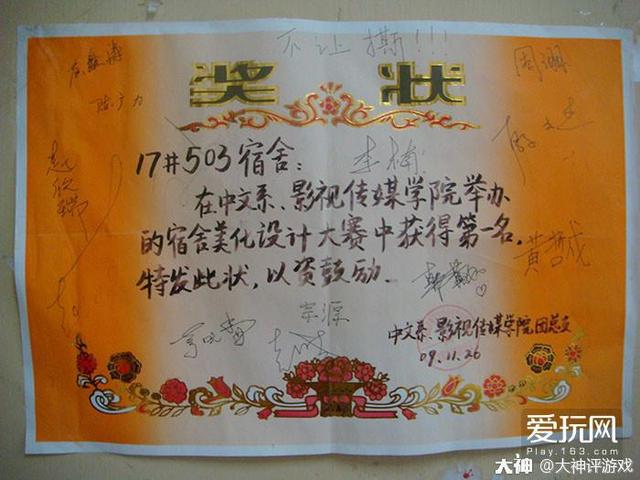 不让撕!!!
奖状
17#503宿舍:
在中文系、影视传媒学院举办
的宿舍美化设计大赛中获得第一名,
特发此状,以资鼓励.
中文系、影视传媒学院团总支
09.11.26
李楠
黄哲诚
宗源
爱玩网
Play.163.com
大神 @大神评游戏